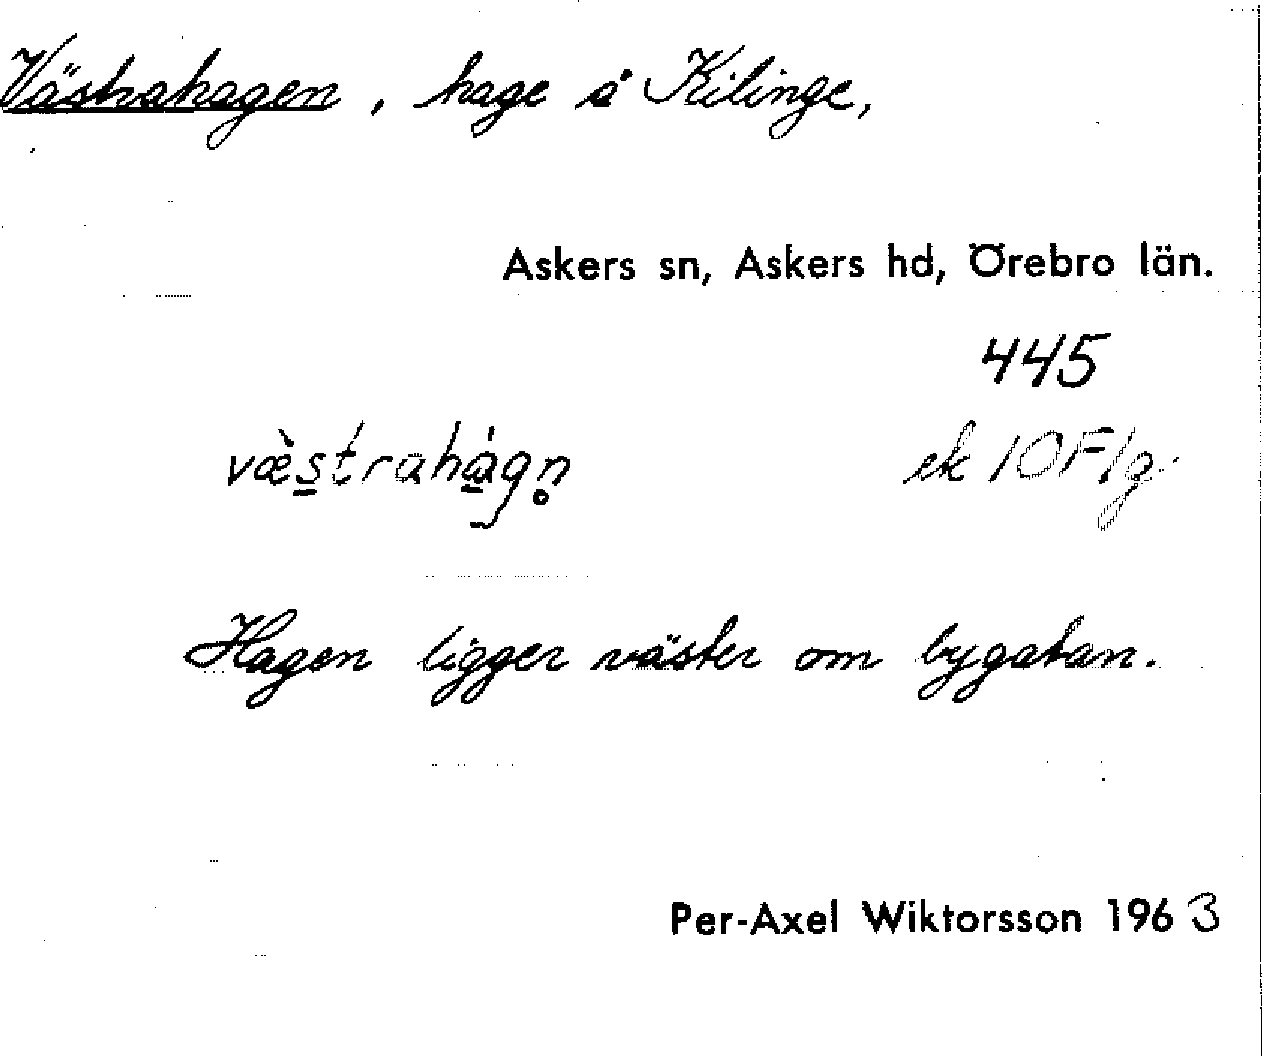 Västrahagen, hage å Kilinge,
Askers sn, Askers hd, Örebro län.
445
væ̀strahágn̥
ek 10F1g
Hagen ligger väster om bygatan.
Per-Axel Wiktorsson 1963